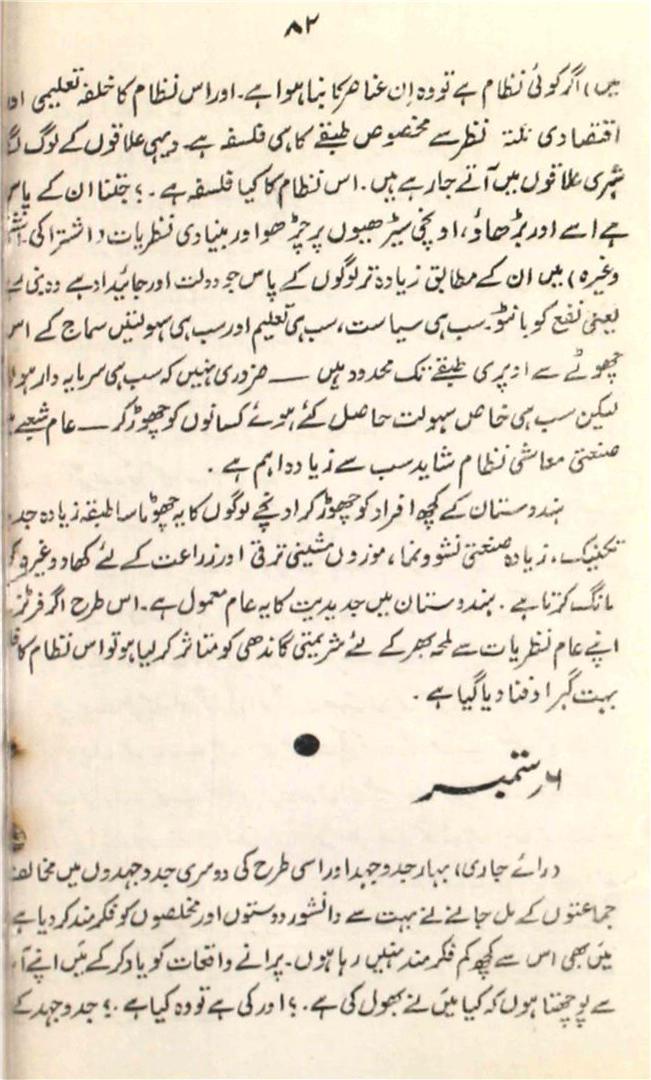 ۸۲
ہیں) اگر کوئی نظام ہے تو وہ اِن عناصر کا بنا ہوا ہے۔ اور اس نظام کا خلفہ تعلیمی
اقتصادی نکتۂ نظر سے مخصوص طبقے کا ہی فلسفہ ہے۔ دیہی علاقوں کے لوگ
شہری علاقوں میں آتے جارہے ہیں۔ اس نظام کا کیا فلسفہ ہے۔؟ جتنا ان کے پاس
ہے اسے اور بڑھاؤ، اونچی سیڑھیوں پر چڑھو اور بنیادی نظریات (اشتراکی۔
وغیرہ) میں ان کے مطابق زیادہ تر لوگوں کے پاس جو دولت اور جائیداد ہے وہ بنی ہے
یعنی نفع کو بانٹو۔ سب ہی سیاست، سب ہی تعلیم اور سب ہی سہولتیں سماج کے اس
چھوٹے سے اوپری طبقے تک محدود ہیں — ضروری نہیں کہ سب ہی سرمایہ دار
لیکن سب ہی خاص سہولت حاصل کئے ہوئے کسانوں کو چھوڑ کر — عام شعبے
صنعتی معاشی نظام شاید سب سے زیادہ اہم ہے۔
ہندوستان کے کچھ افراد کو چھوڑ کر اونچے لوگوں کا یہ چھوٹا سا طبقہ زیادہ
تکنیک، زیادہ صنعتی نشوونما، موزوں مشینی ترقی اور زراعت کے لئے کھاد وغیرہ
مانگ کرتا ہے۔ ہندوستان میں جدیدیت کا یہ عام معمول ہے۔ اس طرح اگر
اپنے عام نظریات سے لمحہ بھر کے لئے شریمتی گاندھی کو متاثر کر لیا ہو تو اس نظام کا
بہت گہرا دفنا دیا گیا ہے۔
۶ ستمبر
درائے جاری، بہار جدوجہد اور اسی طرح کی دوسری جدوجہدوں میں مخالف
جماعتوں کے مل جانے نے بہت سے دانشور دوستوں اور مخلصوں کو فکر مند کر دیا ہے
میں بھی اس سے کچھ کم فکر مند نہیں رہا ہوں۔ پرانے واقعات کو یاد کر کے میں اپنے
سے پوچھتا ہوں کہ کیا میں نے بھول کی ہے۔؟ اور کی ہے تو وہ کیا ہے۔؟ جدوجہد کے